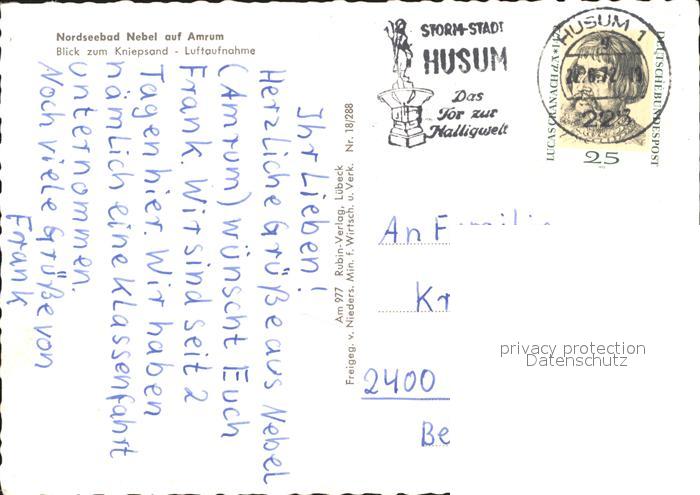 Nordseebad Nebel auf Amrum
Blick zum Kniepsand - Luftaufnahme
Ihr Lieben!
Herzliche Grüße aus Nebel
(Amrum) wünscht Euch
Frank. Wir sind seit 2
Tagen hier. Wir haben
nämlich eine Klassenfahrt
unternommen.
Noch viele Grüße von
Frank
Am 977 Rubin-Verlag, Lübeck
Freigeg. v. Nieders. Min. f. Wirtsch. u. Verk. Nr. 18/288
STORM-STADT
HUSUM
Das
Tor zur
Halligwelt
HUSUM 1
225
LUCAS CRANACH d.Ä. * 1472
DEUTSCHE BUNDESPOST
25
An Familie
Kr
2400
Be
privacy protection
Datenschutz